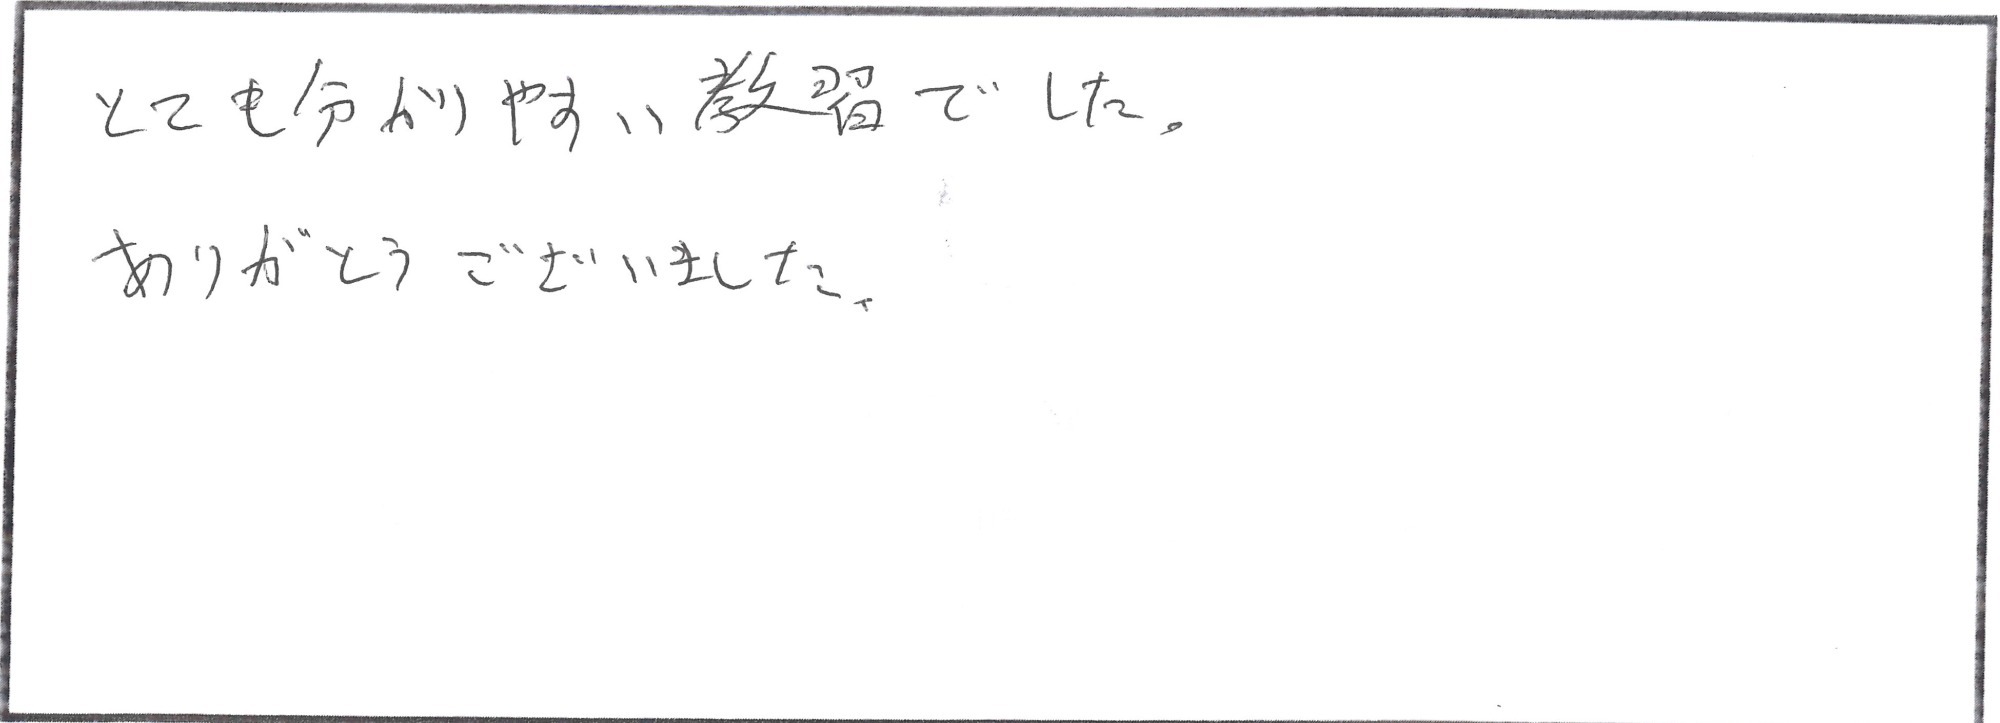 とても分かりやすい教習でした。
ありがとうございました。